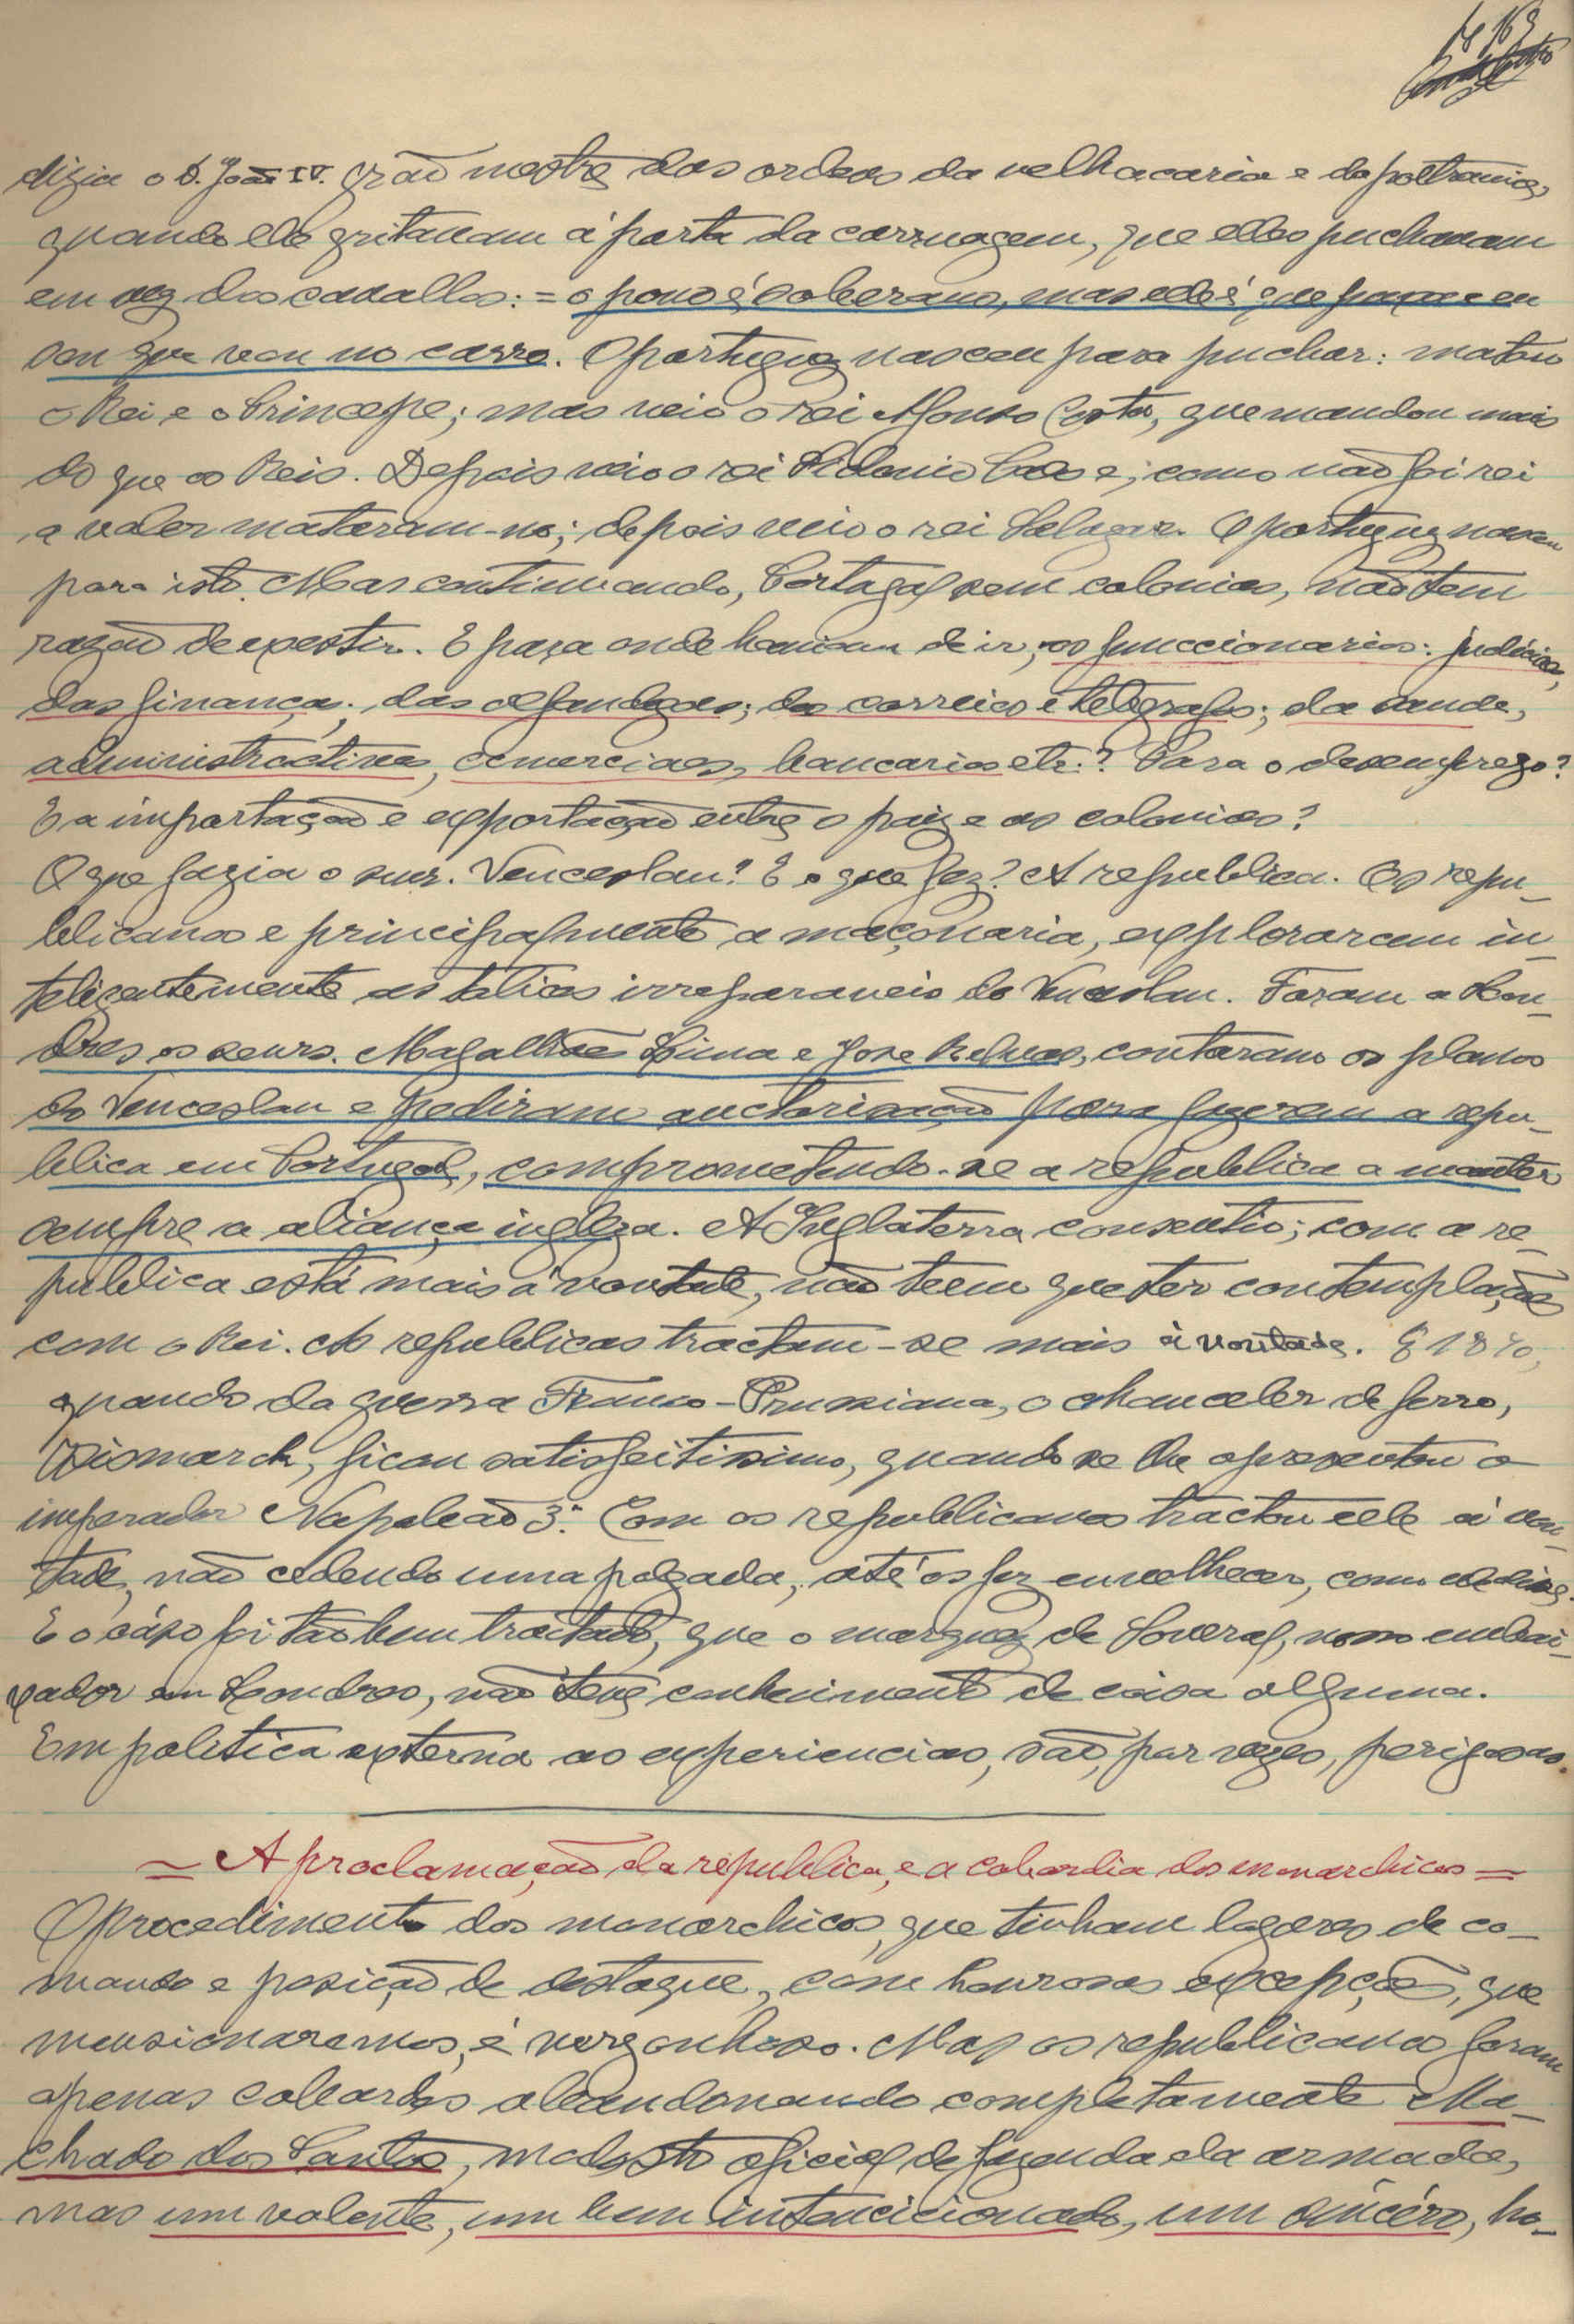 fl 163
dizia o D. João IV. grão mestre das ordens da velhacaria e da poltranice,
quando eles gritavam á porta da carruagem, que elles puchavam
em vez dos cavallos: = o povo é soberano, mas ele é que puxa e eu
sou que vou no carro. O portuguez nasceu para puchar: matou
o Rei e o Principe; mas veio o rei Afonso Costa, que mandou mais
do que os Reis. Depois veio o rei Sidonio Paes e, como não foi rei
a valer mataram-no; depois veio o rei Salazar. O portuguez nasceu
para isto. Mas continuando, Portugal sem colonias, não tem
razão de existir. E para onde haviam de ir, os funccionarios: judiciaes,
das finanças; das alfandegas; dos correios e telegrafos; da saude,
administractivos, comerciaes, bancarios etc.? Para o desemprego?
E a importação e exportação entre o paiz e as colonias?
O que fazia o snr. Venceslau? E o que fez? A republica. Os repu-
blicanos e principalmente a maçonaria, explorarem in-
teligentemente as talices irreparaveis do Venceslau. Foram a Lon-
dres os seurs. Magalhães Lima e José Relvas, contaram os planos
do Venceslau e pediram auctorisação para fazerem a repu-
blica em Portugal, comprometendo-se a republica a manter
sempre a aliança ingleza. A Inglaterra consentio; com a re-
publica está mais á vontade, não teem que ter contemplações
com o Rei. As republicas tractam-se mais á vontade. E 1870,
quando da guerra Franco-Prussiana, o chanceler de ferro,
Bismarck, ficou satisfeitissimo, quando se lhe apresentou o
imperador Napoleão 3º. Com os republicanos tractou elle á von-
tade, não cedendo uma polgada, até os fez envelhecer, como ele disse.
E o cáso foi tão bem tractado, que o marquez de Soveral, nosso embai-
xador em Londres, não teve conhecimento de coisa alguma.
Em politica externa as experiencias, são, por vezes, perigosas.
= A proclamação da republica, e a cobardia dos monarchicos =
O procedimento dos monarchicos, que tinham logares de co-
mando e posição de destaque, com honrosas excepções, que
mensionaremos, é vergonhoso. Mas os republicanos foram
apenas cobardes abandonando completamente Ma-
chado dos Santos, modesto oficial de fazenda da armada,
mas um valente, um bem intencicionado, um sincéro, ho-